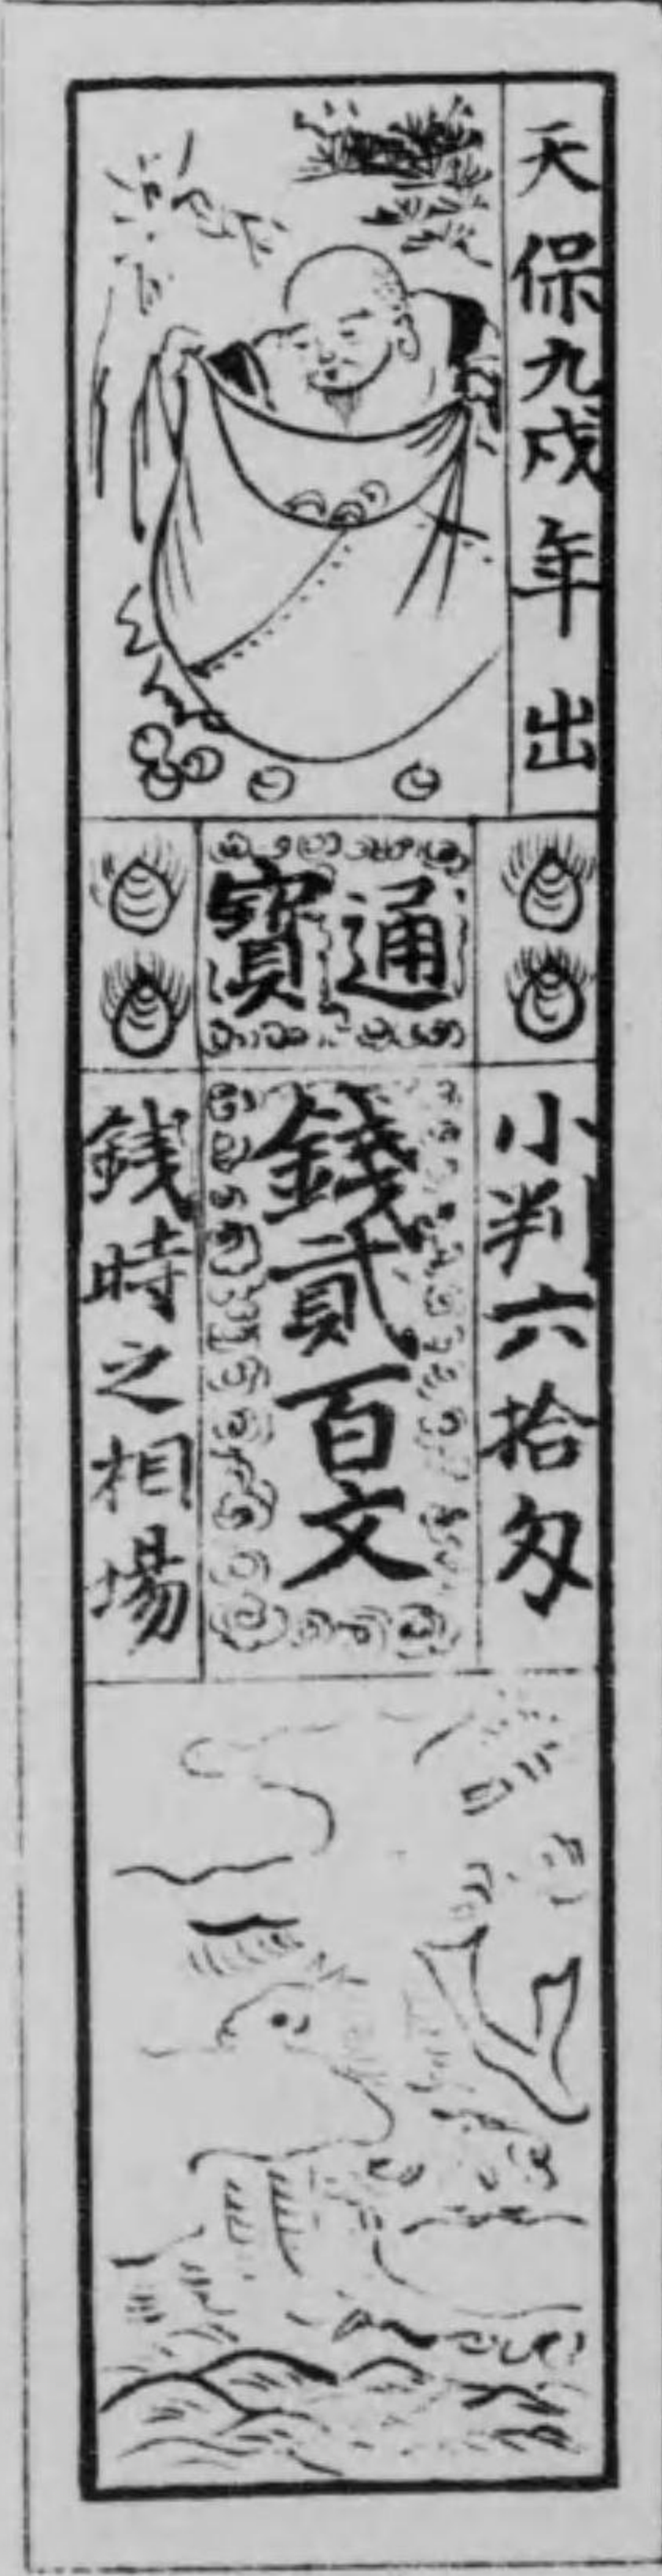 天保九戍年出
通寳
小判六拾匁
錢貳百文
銭時之相場